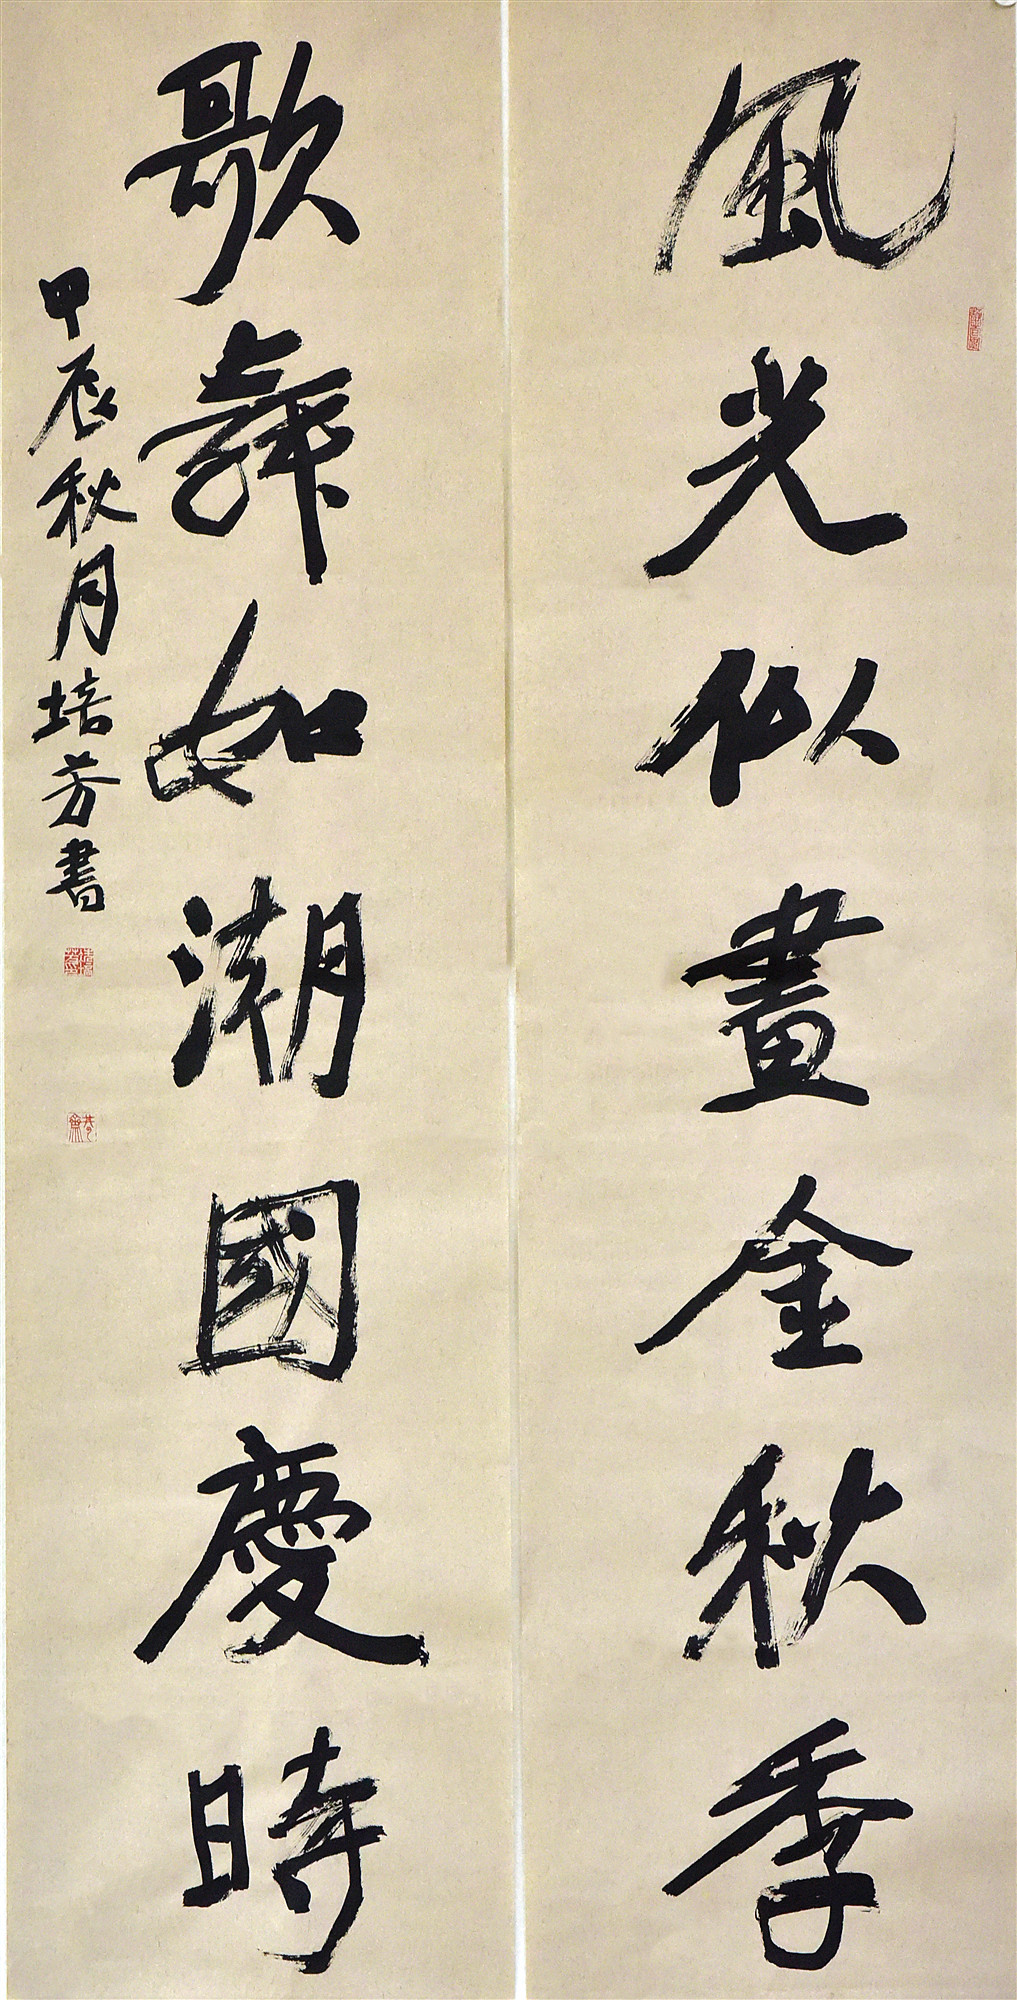 風光似畫金秋季
歌舞如潮國慶時
甲辰秋月培芳書